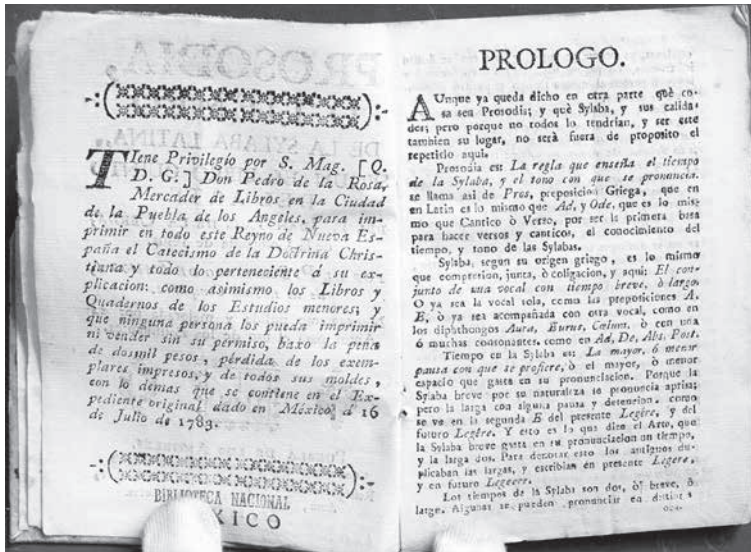 TIene Privilegio por S. Mag. [Q.
D. G.] Don Pedro de la Rosa,
Mercader de Libros en la Ciudad
de la Puebla de los Angeles, para im-
primir en todo este Reyno de Nueva Es-
paña el Catecismo de la Doctrina Chris-
tiana y todo lo perteneciente á su ex-
plicacion: como asimismo los Libros y
Quadernos de los Estudios menores; y
que ninguna persona los pueda imprimir
ni vender sin su permiso, baxo la pena
de dosmil pesos, pérdida de los exem-
plares impresos, y de todos sus moldes,
con lo demas que se contiene en el Ex-
pediente original dado en México á 16
de Julio de 1783.
BIBLIOTECA NACIONAL
XICO
PROLOGO.
AUnque ya queda dicho en otra parte què co-
sa sea Prosodia; y què Sylaba, y sus calida-
des; pero porque no todos lo tendrían, y ser este
tambien su lugar, no será fuera de proposito el
repetirlo aqui.
Prosodia es: La regla que enseña el tiempo
de la Sylaba, y el tono con que se pronuncia.
se llama asi de Pros, preposicion Griega, que en
en Latin es lo mismo que Ad, y Ode, que es lo mis-
mo que Cantico ò Verso, por ser la primera basa
para hacer versos y canticos, el conocimiento del
tiempo, y tono de las Sylabas.
Sylaba, segun su origen griego, es lo mismo
que compresion, junta, ò coligacion, y aqui: El con-
junto de una vocal con tiempo breve, ò largo.
O ya sea la vocal sola, como las preposiciones A,
E, ò ya sea acompañada con otra vocal, como en
los diphthongos Aura, Eurus, Cœlum, ò con una
ó muchas consonantes, como en Ad, De, Abs, Post.
Tiempo en la Sylaba es: La mayor, ó menor
pausa con que se profiere, ò el mayor, ò menor
espacio que gasta en su pronunciacion. Porque la
Sylaba breve por su naturaleza se pronuncia aprisa;
pero la larga con alguna pausa y detencion, como
se ve en la segunda E del presente Legĕre, y del
futuro Legēre. Y esto es lo que dice el Arte, que
la Sylaba breve gasta en su pronunciacion un tiempo,
y la larga dos. Para denotar esto los antiguos du-
plicaban las largas, y escribian en presente Legere,
y en futuro Legeere.
Los tiempos de la Sylaba son dos, ò breve, ò
largo. Algunas se pueden pronunciar en